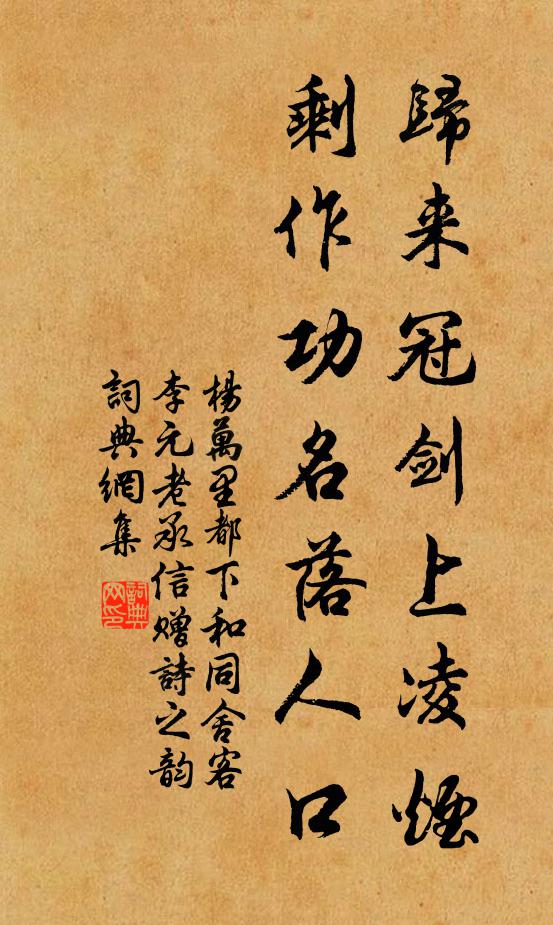 歸来冠剑上凌煙
剩作功名落人口
楊萬里都下和同舍客
李元老承信赠詩之韵
詞典網集
詞典網印